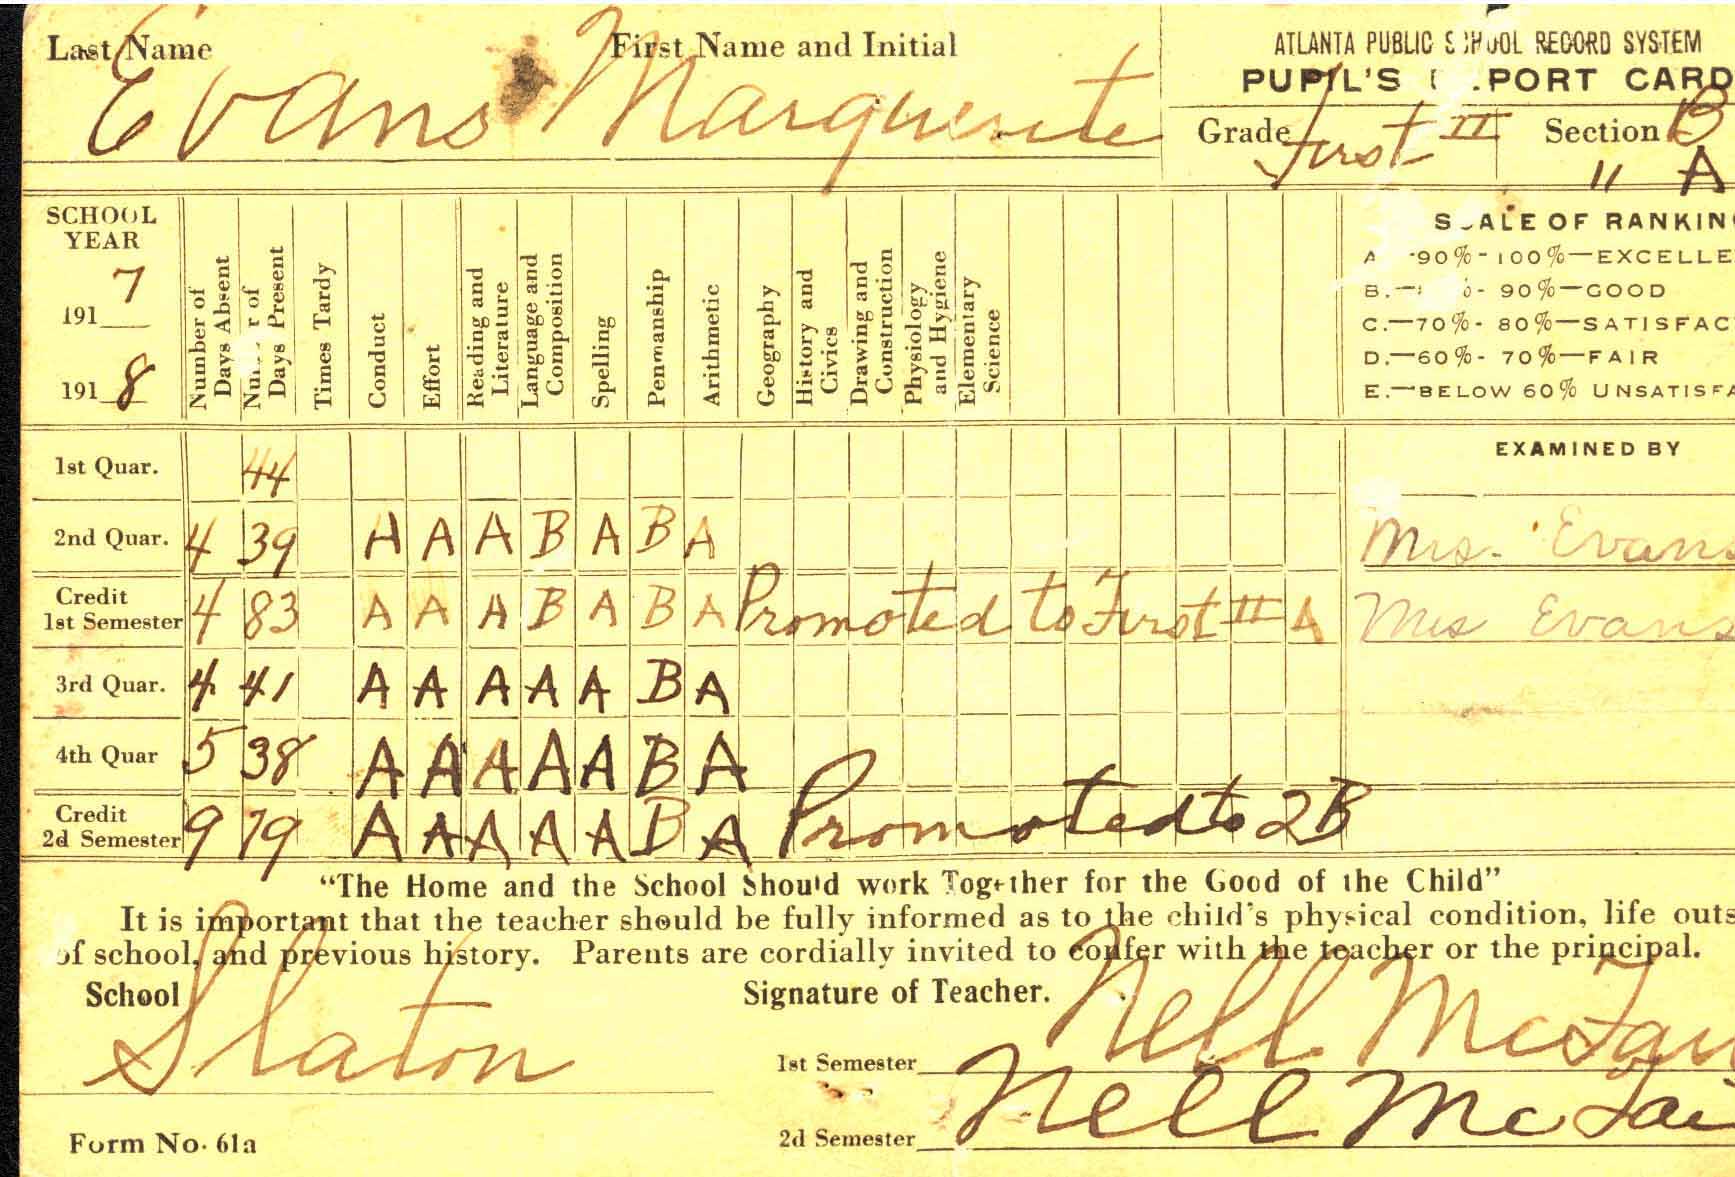 Last Name First Name and Initial
Evans Marguerite
ATLANTA PUBLIC SCHOOL RECORD SYSTEM
PUPIL'S PORT CARD
Grade First II Section B
" A
SCHOOL YEAR
191 7
191 8
Number of Days Absent
Number of Days Present
Times Tardy
Conduct
Effort
Reading and Literature
Language and Composition
Spelling
Penmanship
Arithmetic
Geography
History and Civics
Drawing and Construction
Physiology and Hygiene
Elementary Science
SCALE OF RANKIN
A. -90%-100%—EXCELLE
B.— - 90%—GOOD
C.—70%- 80%—SATISFAC
D.—60%- 70%—FAIR
E.—BELOW 60% UNSATISFA
EXAMINED BY
1st Quar. 44
2nd Quar. 4 39 A A A B A B A Mrs. Evans
Credit 1st Semester 4 83 A A A B A B A Promoted to First II A Mrs Evans
3rd Quar. 4 41 A A A A A B A
4th Quar 5 38 A A A A A B A
Credit 2d Semester 9 79 A A A A A B A Promoted to 2B
"The Home and the School Should work Together for the Good of the Child"
It is important that the teacher should be fully informed as to the child's physical condition, life outs
of school, and previous history. Parents are cordially invited to confer with the teacher or the principal.
School Slaton
Signature of Teacher.
1st Semester Nell
2d Semester Nell
Form No. 61a